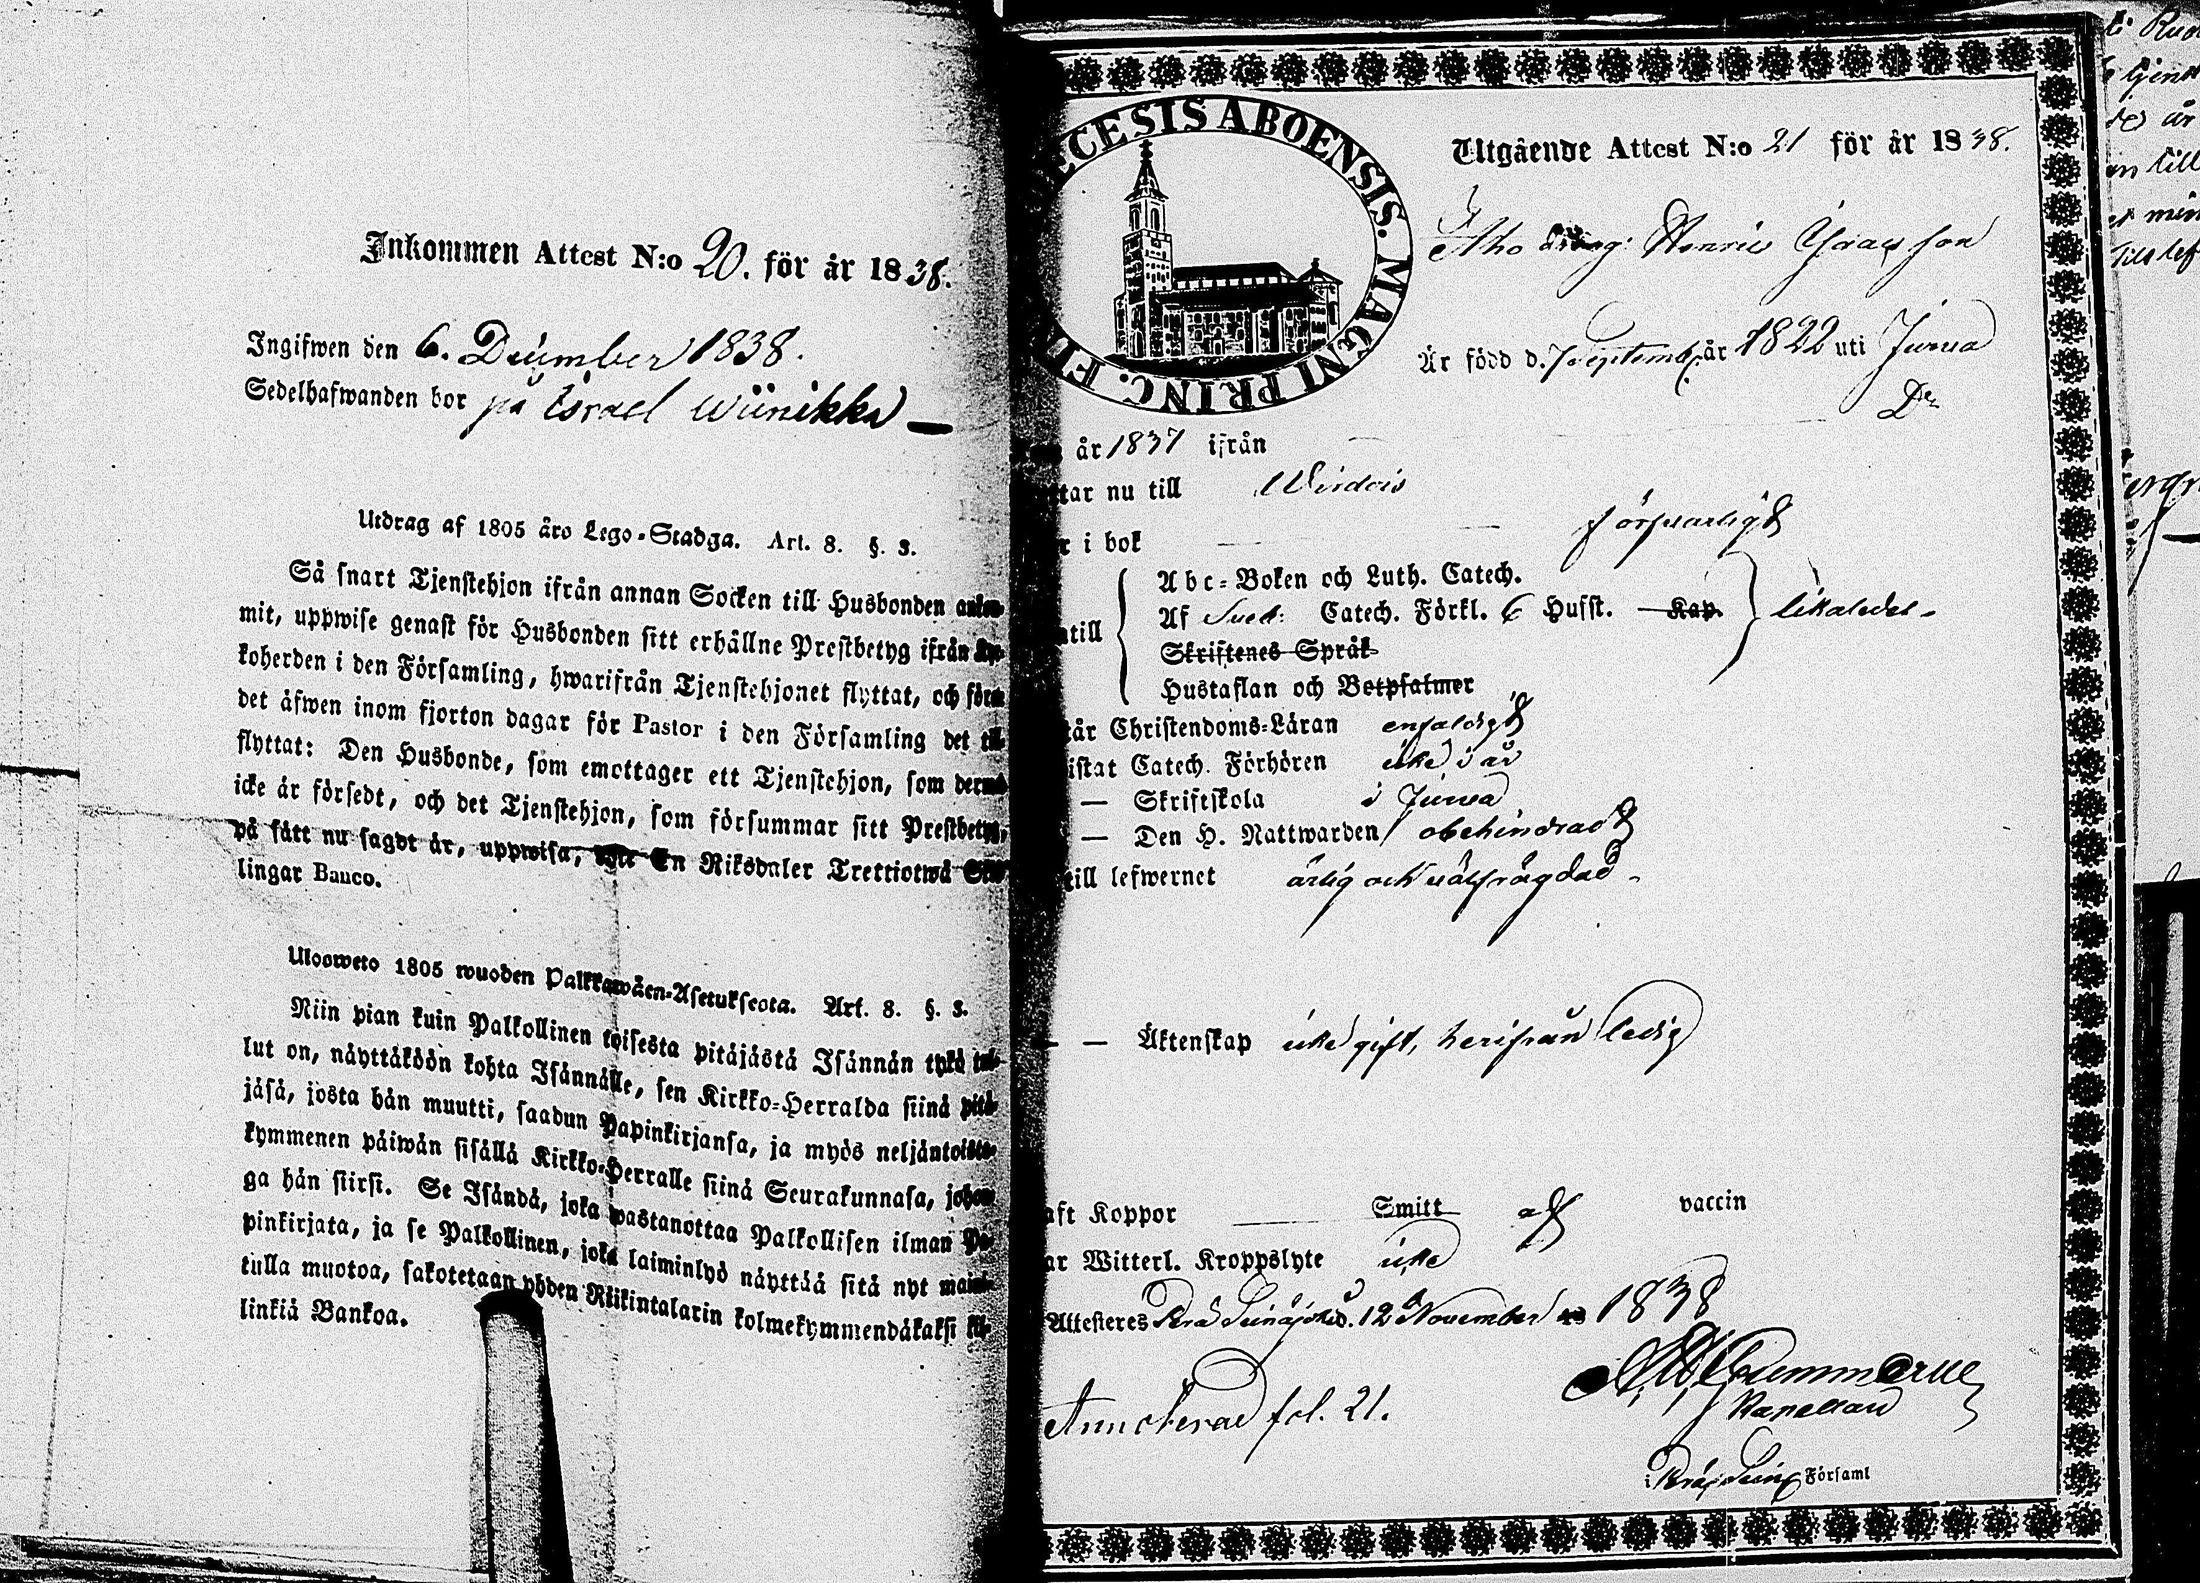 Inkommen Attest N:o 20. för år 1838.
Ingifwen den 6. December 1838.
Sedelhafwanden bor på Israel Wiinikka
Utdrag af 1805 års Lego-Stadga. Art. 8. §. 3.
Så snart Tjenstehjon ifrån annan Socken till Husbonden
mit, uppwise genast för Husbonden sitt erhållne Prestbetyg ifrån Ky-
koherden i den Församling, hwarifrån Tjenstehjonet flyttat, och förete
det äfwen inom fjorton dagar för Pastor i den Församling det till-
flyttat: Den Husbonde, som emottager ett Tjenstehjon, som dermed
icke är försedt, och det Tjenstehjon, som försummar sitt Prestbetyg,
på sätt nu sagdt är, uppwisa, En Riksdaler Trettiotwå
lingar Banco.
Ulosweto 1805 wuoden Palkkawäen-Asetuksesta. Art. 8. §. 3.
Niin pian kuin Palkollinen toisesta pitäjästä Isännän tykö tul-
lut on, näyttäköön kohta Isännälle, sen Kirkko-Herralda siinä pitä-
jäsä, josta hän muutti, saadun Papinkirjansa, ja myös neljäntoista-
kymmenen päiwän sisällä Kirkko-Herralle siinä Seurakunnasa, johon-
ga hän siirsi. Se Isändä, joka wastanottaa Palkollisen ilman Pa-
pinkirjata, ja se Palkollinen, joka laiminlyö näyttää sitä nyt maini-
tulla muotoa, sakotetaan yhden Riikintalarin kolmekymmendäkaksi kil-
linkiä Bankoa.
ECESIS ABOENSIS. MAGNI PRINC. F
Utgående Attest N:o 21 för år 1838.
Henric Isaacsson
Är född d. 7 Septemb. år 1822 uti Jurva
år 1837 ifrån
tar nu till Wirdois
i bok försvarligt
till
Abc-Boken och Luth. Catech.
Af Sved. Catech. Förkl. 6 Hufst. Kap.
Skriftenes Språk
Hustaflan och Botpsalmer
likaledes
tår Christendoms-Läran enfaldigt
istat Catech. Förhören icke i år
— Skriftskola i Jurva
— Den H. Nattwarden obehindradt
till lefwernet ärlig och välfrägdad
— Äktenskap icke gift, härifrån ledig
aft Koppor Smitt af vaccin
ar Witterl. Kroppslyte icke
Attesteres Perä Seinäjoki d. 12 November 1838
Kapellan
Annoterad fol. 21.
i Perä Sein Församl